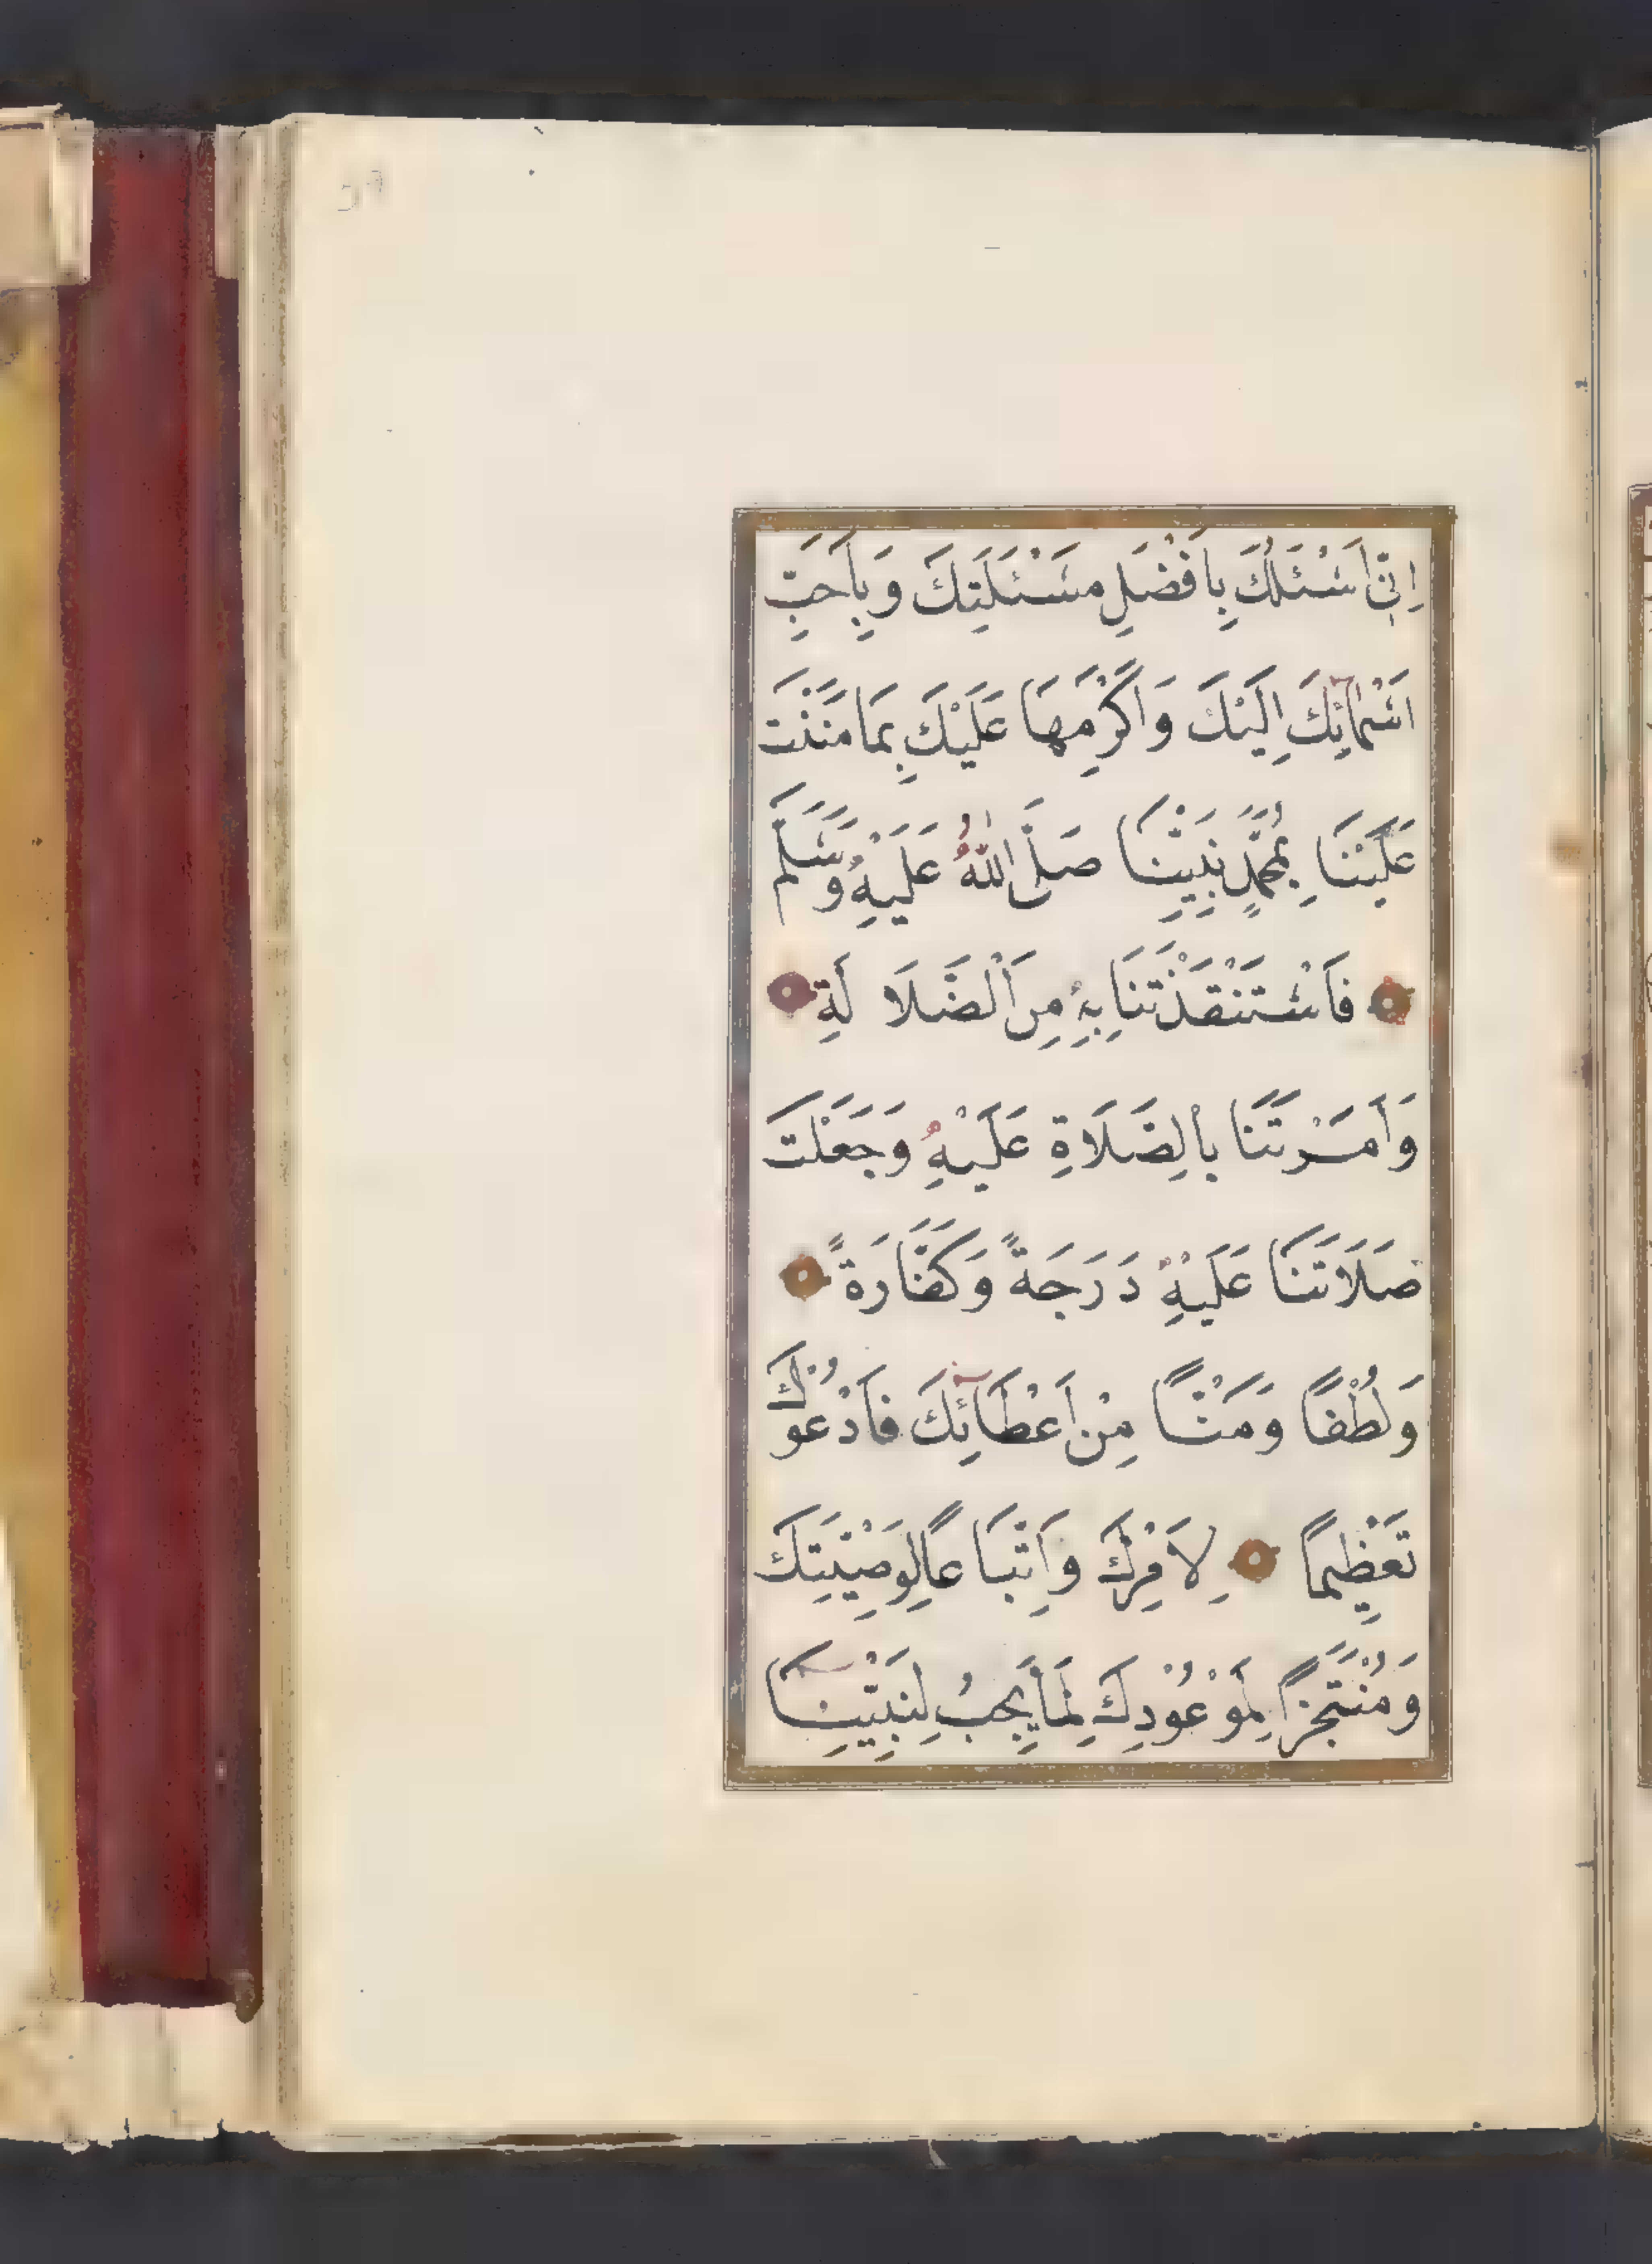 اِنّىِ اَسْئَلُكَ بِاَفْضَلِ مَسْئَلَتِكَ وَبِاَحَبِّ
اَسْمَآئِكَ اِلَيْكَ وَاَكْرَمِهَا عَلَيْكَ بِمَا مَنَنْتَ
عَلَيْنَا بِمُحَمَّدٍ نَبِيِّنَا صَلَّى اللّٰهُ عَلَيْهِ وَسَلَّمَ
فَاسْتَنْقَذْتَنَا بِهِ مِنَ الْضَّلَا لَةِ
وَاَمَرْتَنَا بِالصَّلَاةِ عَلَيْهِ وَجَعَلْتَ
صَلَاتَنَا عَلَيْهِ دَرَجَةً وَكَفَّارَةً
وَلُطْفًا وَمَنًّا مِنْ اَعْطَآئِكَ فَاَدْعُوْكَ
تَعْظِيمًا لِاَمْرِكَ وَاِتِّبَاعًا لِوَصِيَّتِكَ
وَمُنْتَجِزًا لِمَوْعُوْدِكَ لِمَا يَجِبُ لِنَبِيِّنَا